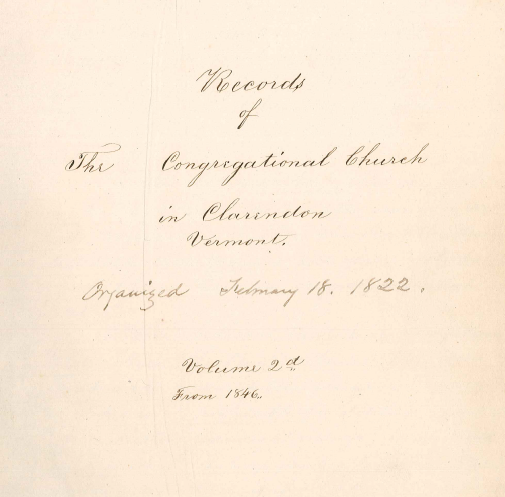 Records
of
The Congregational Church
in Clarendon
Vermont.
Organized February 18. 1822.
Volume 2d
From 1846.